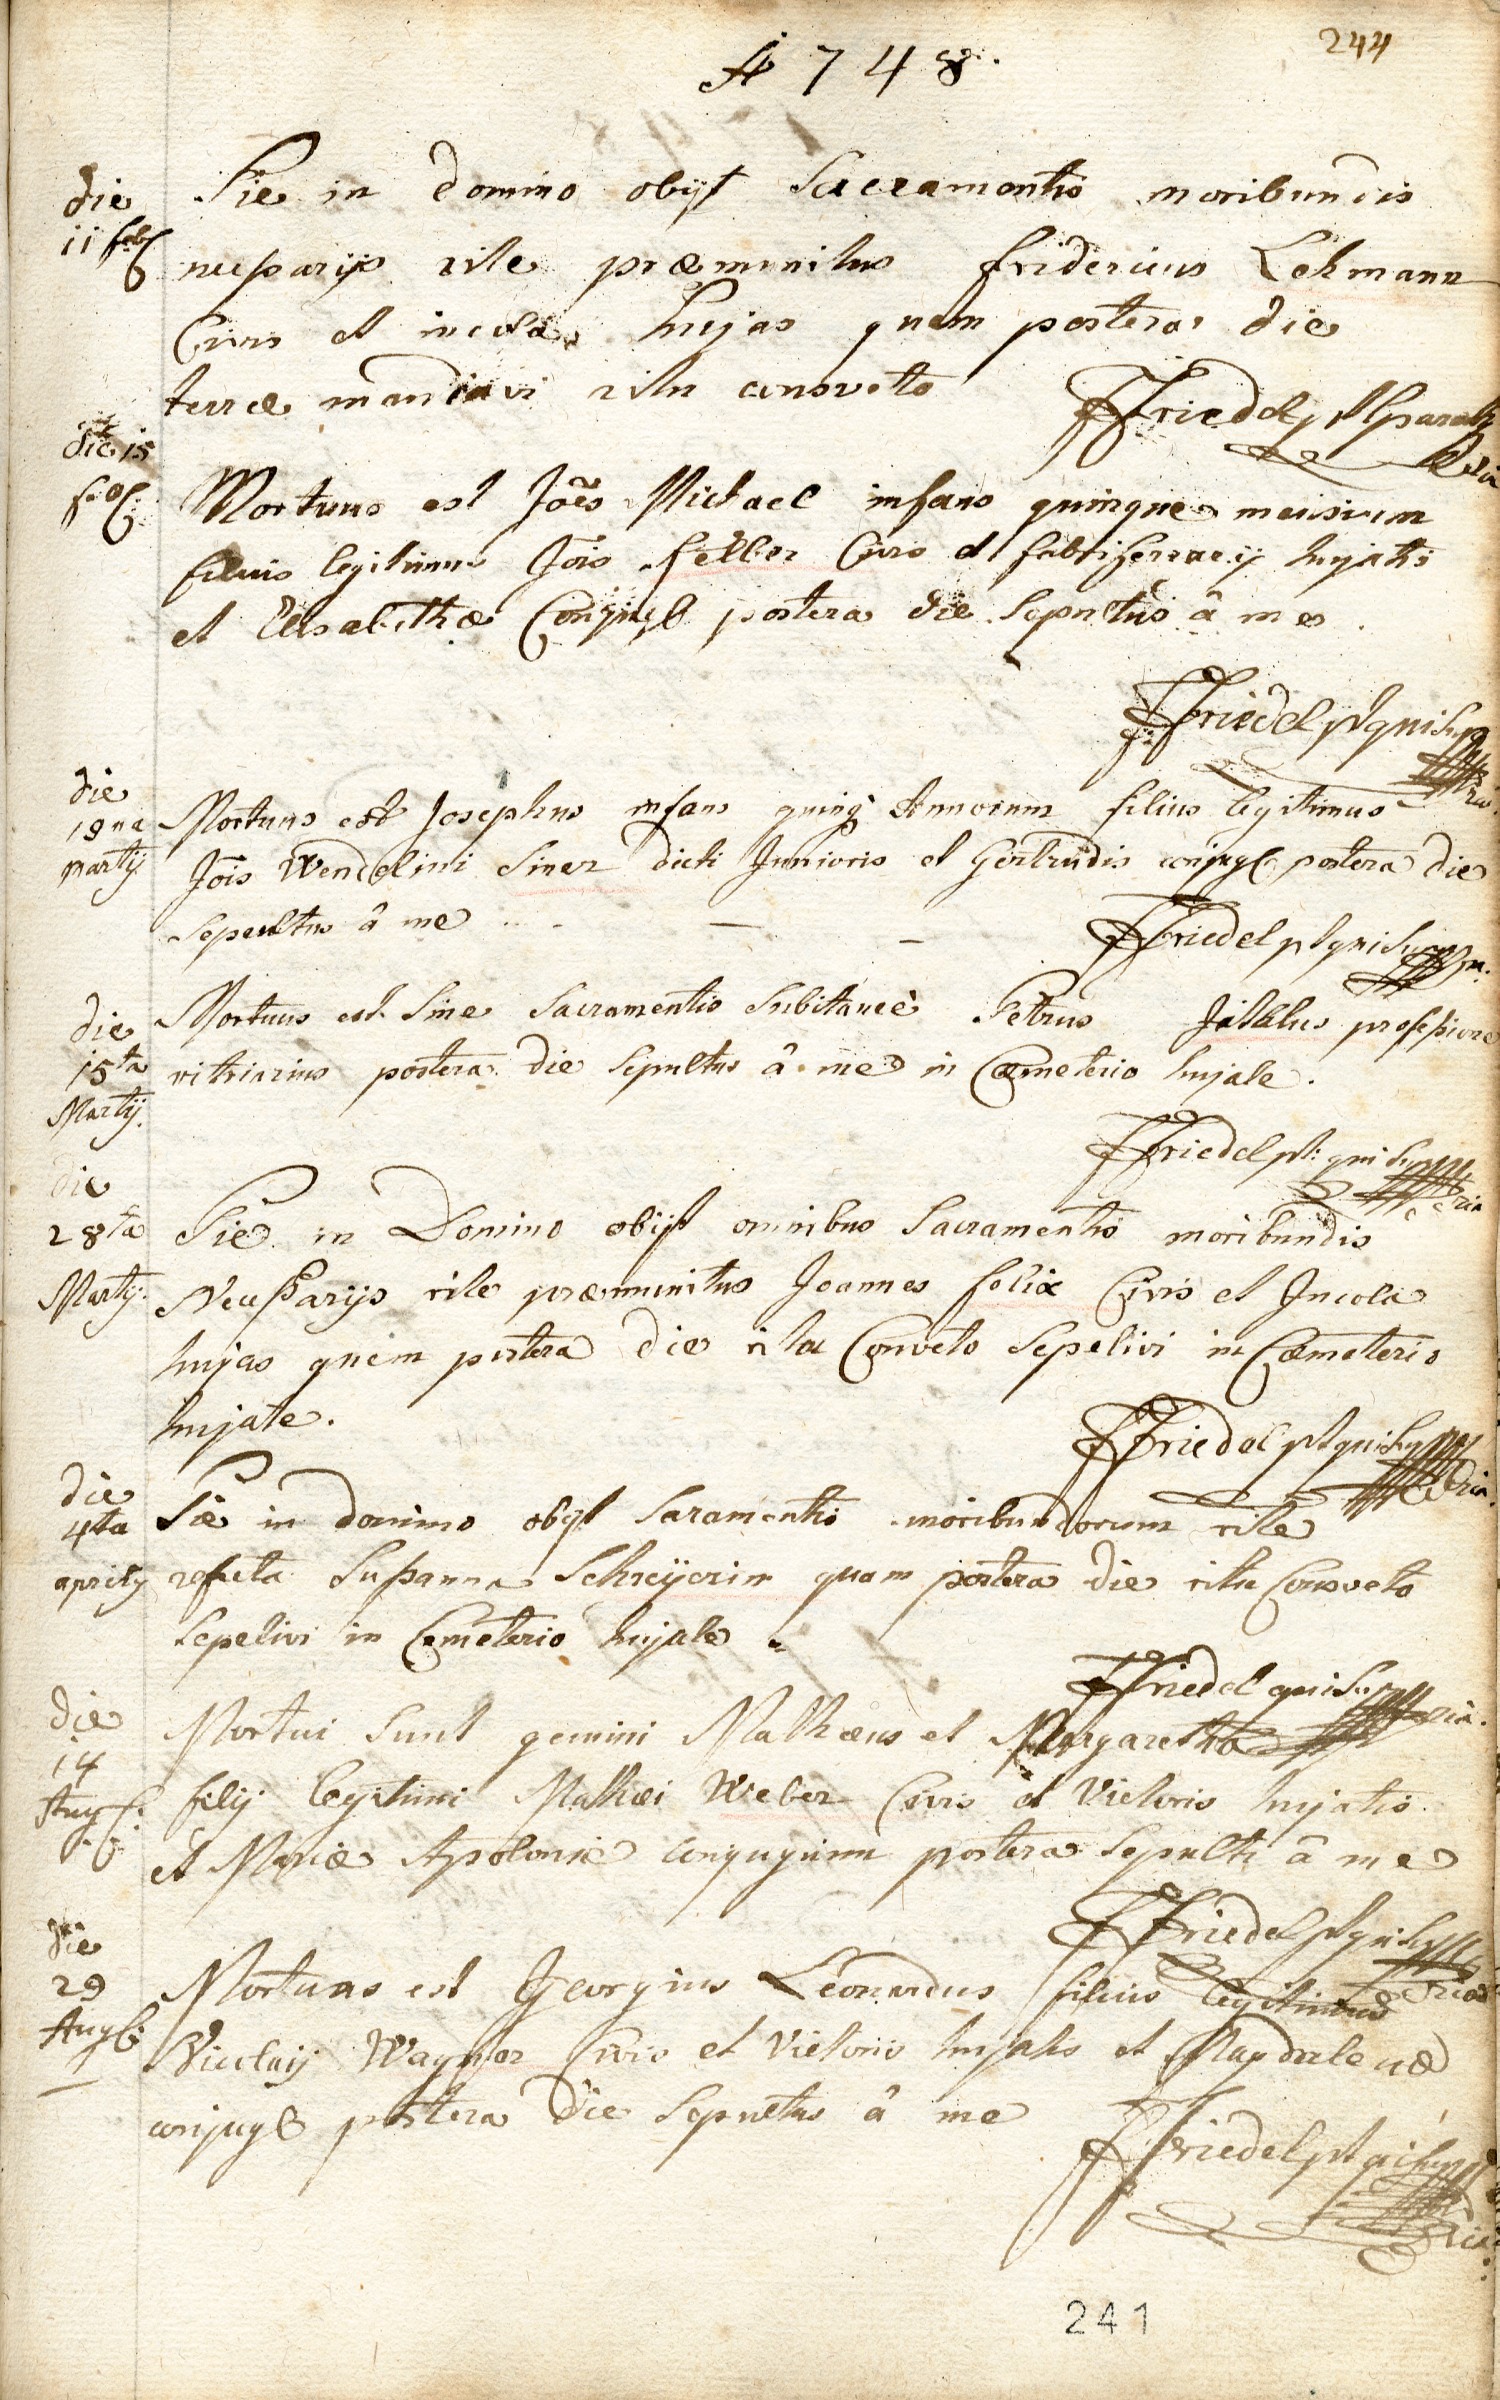 244
A 748.
die
11 feb
Pie in domino obijt Sacramentis moribundis
necessarijs rite præmunitus fridericus Lehmann
Civis et incola hujas quem postera die
terræ mandavi ritu consveto
FFriedel pt
die 15
feb
Mortuus est Joēs Michael infans quinque mensium
filius legitimus Jois feller Civis et fabri ferrarij hujatis
et Elisabethæ Conjug postera die sepultus â me.
FFriedel pt qui supra
die
19na
martij
Mortuus est Josephus infans quinq Annorum filius legitimus
Jois Wendelini Siner dicti Junioris et Gertrudis conjug postera die
sepultus â me
FFriedel pt qui supra
die
15ta
Martij.
Mortuus est sine Sacramentis subitaneè Petrus professione
vitriarius postera die sepultus â me in Cœmeterio hujate.
FFriedel pt qui supra
die
28ta
Martij.
Pie in Domino obijt omnibus Sacramentis moribundis
Necessarijs rite præmunitus Joannes felix Civis et Incola
hujas quem postera die ritu Consveto Sepelivi in Cœmeterio
hujate.
FFriedel pt qui supra
die
4ta
aprily
Pie in domino obijt Saramentis moribundorum rite
refecta Susanna Schreijerin quam postera die ritu Consveto
Sepelivi in Cemeterio hujate
FFriedel qui supra
die
14
Aug
Mortui sunt gemini Mathæus et Margaretha
filij legitimi Mathæi Weber Civis et Vietoris hujatis
et Mariæ Apoloniæ conjugium postera sepulti â me
FFriedel pt qui supra
die
29
Aug
Mortuus est Georgius Leonardus filius legitimus
Nicolaij Wagner Civis et Vietoris hujatis et Magdalenæ
conjug postera die sepultus â me
FFriedel pt qui supra
241